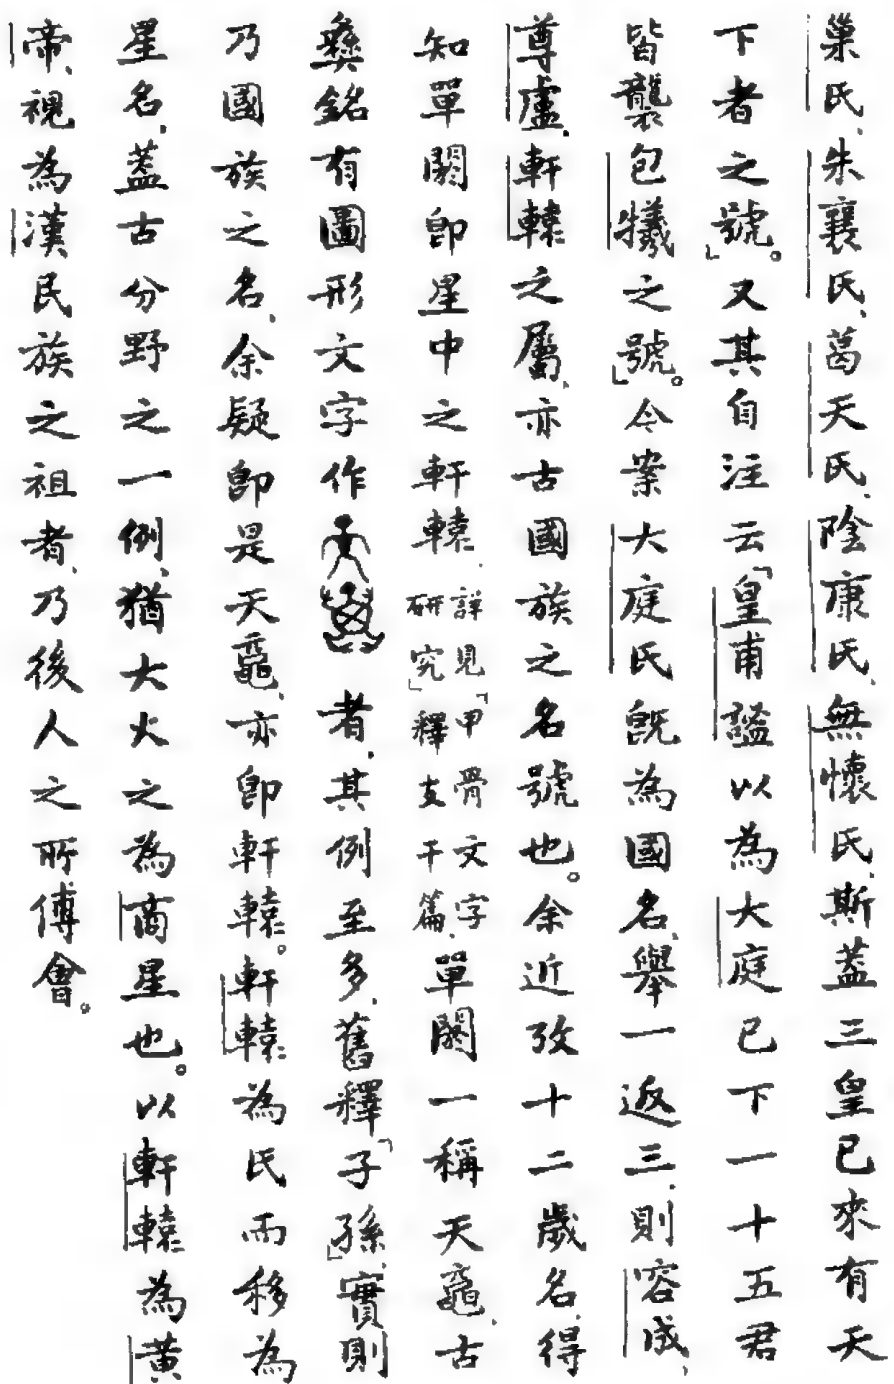 巢氏、朱襄氏、葛天氏、陰康氏、無懷氏、斯蓋三皇已來有天
下者之號」。又其自注云「皇甫謐以為大庭已下一十五君
皆襲包犧之號」。今案大庭氏既為國名、舉一返三、則容成、
尊盧、軒轅之屬、亦古國族之名號也。余近攷十二歲名、得
知單閼即星中之軒轅、詳見「甲骨文字研究」釋支干篇、單閼一稱天黿、古
彝銘有圖形文字作者、其例至多、舊釋「子孫」、實則
乃國族之名、余疑即是天黿、亦即軒轅。軒轅為氏而移為
星名、蓋古分野之一例、猶大火之為商星也。以軒轅為黃
帝、視為漢民族之祖者、乃後人之所傅會。